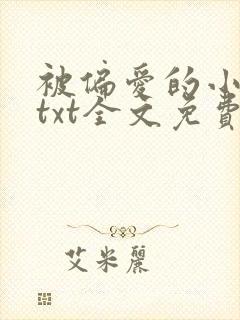 被偏愛的小
txt全文免費
艾米麗